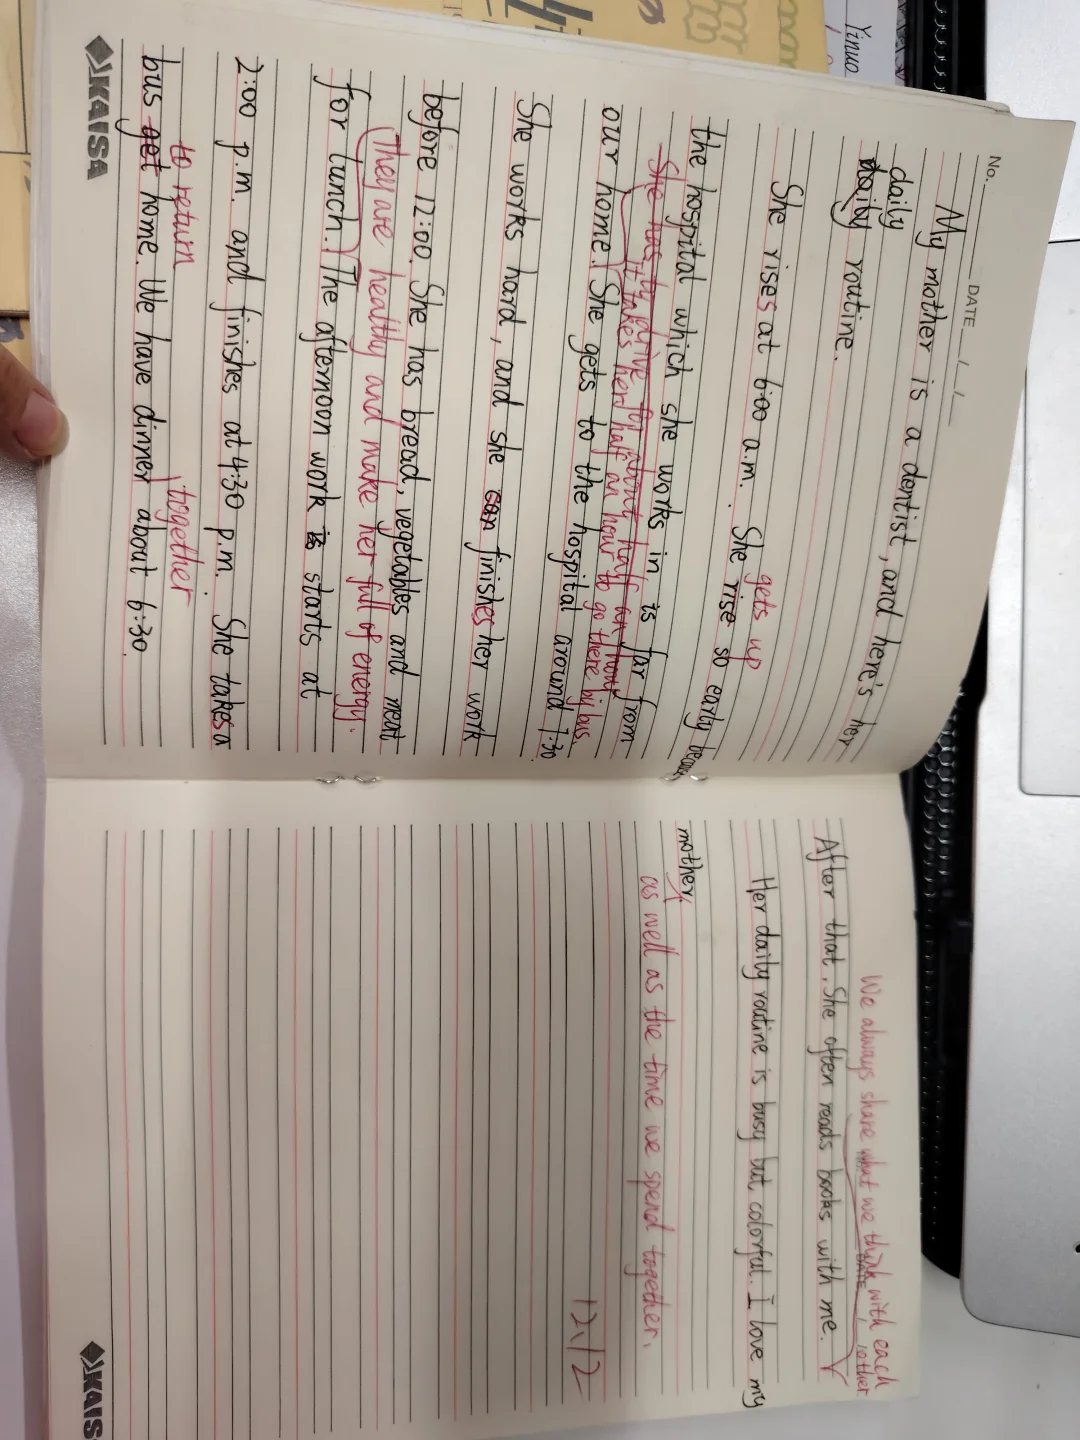 Yinuo
No. DATE / /
My mother is a dentist, and here's her
daily
daily routine.
She rises at 6:00 a.m. She rise so early because
gets up
the hospital which she works in is far from
She has to drive for about half an hour
it takes her half an hour to go there by bus.
our home. She gets to the hospital around 7:30
She works hard, and she can finishes her work
before 12:00. She has bread, vegetables and meat
They are healthy and make her full of energy.
for lunch. The afternoon work is starts at
2:00 p.m. and finishes at 4:30 p.m. She takes a
to return , together
bus get home. We have dinner about 6:30.
KAISA
We always share what we think with each other.
DATE
After that, She often reads books with me.
Her daily routine is busy but colorful. I love my
mother
as well as the time we spend together.
12.12
KAIS